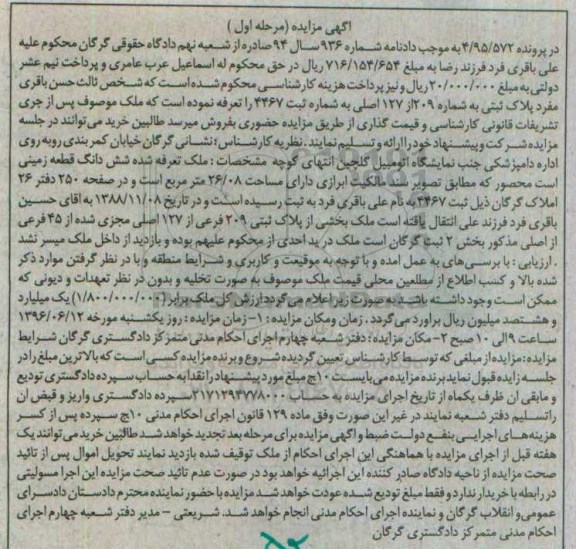 آگهی مزایده (مرحله اول)
در پرونده ۴/۹۵/۵۷۲ به موجب دادنامه شماره ۹۳۶ سال ۹۴ صادره از شعبه نهم دادگاه حقوقی گرگان محکوم علیه
علی باقری فرد فرزند رضا به مبلغ ۷۱۶/۱۵۴/۶۵۴ ریال در حق محکوم له اسماعیل عرب عامری و پرداخت نیم عشر
دولتی به مبلغ ۲۰/۰۰۰/۰۰۰ ریال و نیز پرداخت هزینه کارشناسی محکوم شده است که شخص ثالث حسن باقری
مفرد پلاک ثبتی به شماره ۲۰۹ از ۱۲۷ اصلی به شماره ثبت ۴۴۶۷ را تعرفه نموده است که ملک موصوف پس از جری
تشریفات قانونی کارشناسی و قیمت گذاری از طریق مزایده حضوری بفروش میرسد طالبین خرید می توانند در جلسه
مزایده شرکت و پیشنهاد خود را ارائه و تسلیم نمایند. نظریه کارشناس: نشانی گرگان خیابان کمربندی روبه روی
اداره دامپزشکی جنب نمایشگاه اتومبیل گلچین انتهای کوچه مشخصات: ملک تعرفه شده شش دانگ قطعه زمینی
است محصور که مطابق تصویر سند مالکیت ابرازی دارای مساحت ۲۶/۰۸ متر مربع است و در صفحه ۲۵۰ دفتر ۲۶
املاک گرگان ذیل ثبت ۴۴۶۷ به نام علی باقری فرد به ثبت رسیده است و در تاریخ ۱۳۸۸/۱۱/۰۸ به آقای حسین
باقری فرد فرزند علی انتقال یافته است ملک بخشی از پلاک ثبتی ۲۰۹ فرعی از ۱۲۷ اصلی مجزی شده از ۴۵ فرعی
از اصلی مذکور بخش ۲ ثبت گرگان است ملک در ید احدی از محکوم علیهم بوده و بازدید از داخل ملک میسر نشد
. ارزیابی: با بررسی های به عمل امده و با توجه به موقعیت و کاربری و شرایط منطقه و با در نظر گرفتن موارد ذکر
شده بالا و کسب اطلاع از مطلعین محلی قیمت ملک موصوف به صورت تخلیه و بدون در نظر تعهدات و دیونی که
ممکن است وجود داشته باشد به صورت زیر اعلام می گردد ارزش کل ملک برابر (۱/۸۰۰/۰۰۰/۰۰۰) یک میلیارد
و هشتصد میلیون ریال براورد می گردد. زمان ومکان مزایده: ۱- زمان مزایده: روز یکشنبه مورخه ۱۳۹۶/۰۶/۱۲
ساعت ۹ الی ۱۰ صبح ۲- مکان مزایده: دفتر شعبه چهارم اجرای احکام مدنی متمرکز دادگستری گرگان شرایط
مزایده: مزایده از مبلغی که توسط کارشناس تعیین گردیده شروع و برنده مزایده کسی است که بالاترین مبلغ را در
جلسه مزایده قبول نماید برنده مزایده می بایست ۱۰% مبلغ مورد پیشنهاد را نقدا به حساب سپرده دادگستری تودیع
و مابقی ان ظرف یکماه از تاریخ اجرای مزایده به حساب ۲۱۷۱۲۹۳۷۷۸۰۰۰ سپرده دادگستری واریز و قبض ان
را تسلیم دفتر شعبه نمایند در غیر این صورت وفق ماده ۱۲۹ قانون اجرای احکام مدنی ۱۰% سپرده پس از کسر
هزینه های اجرایی بنفع دولت ضبط و اگهی مزایده برای مرحله بعد تجدید خواهد شد طالبین خرید می توانند یک
هفته قبل از اجرای مزایده با هماهنگی این اجرای احکام از ملک توقیف شده بازدید نمایند تحویل اموال پس از تائید
صحت مزایده از ناحیه دادگاه صادر کننده این اجرائیه خواهد بود در صورت عدم تائید صحت مزایده این اجرا مسولیتی
در رابطه با خریدار ندارد و فقط مبلغ تودیع شده عودت خواهد شد مزایده با حضور نماینده محترم دادستان دادسرای
عمومی و انقلاب گرگان و نماینده اجرای احکام مدنی انجام خواهد شد. شریعتی - مدیر دفتر شعبه چهارم اجرای
احکام مدنی متمرکز دادگستری گرگان